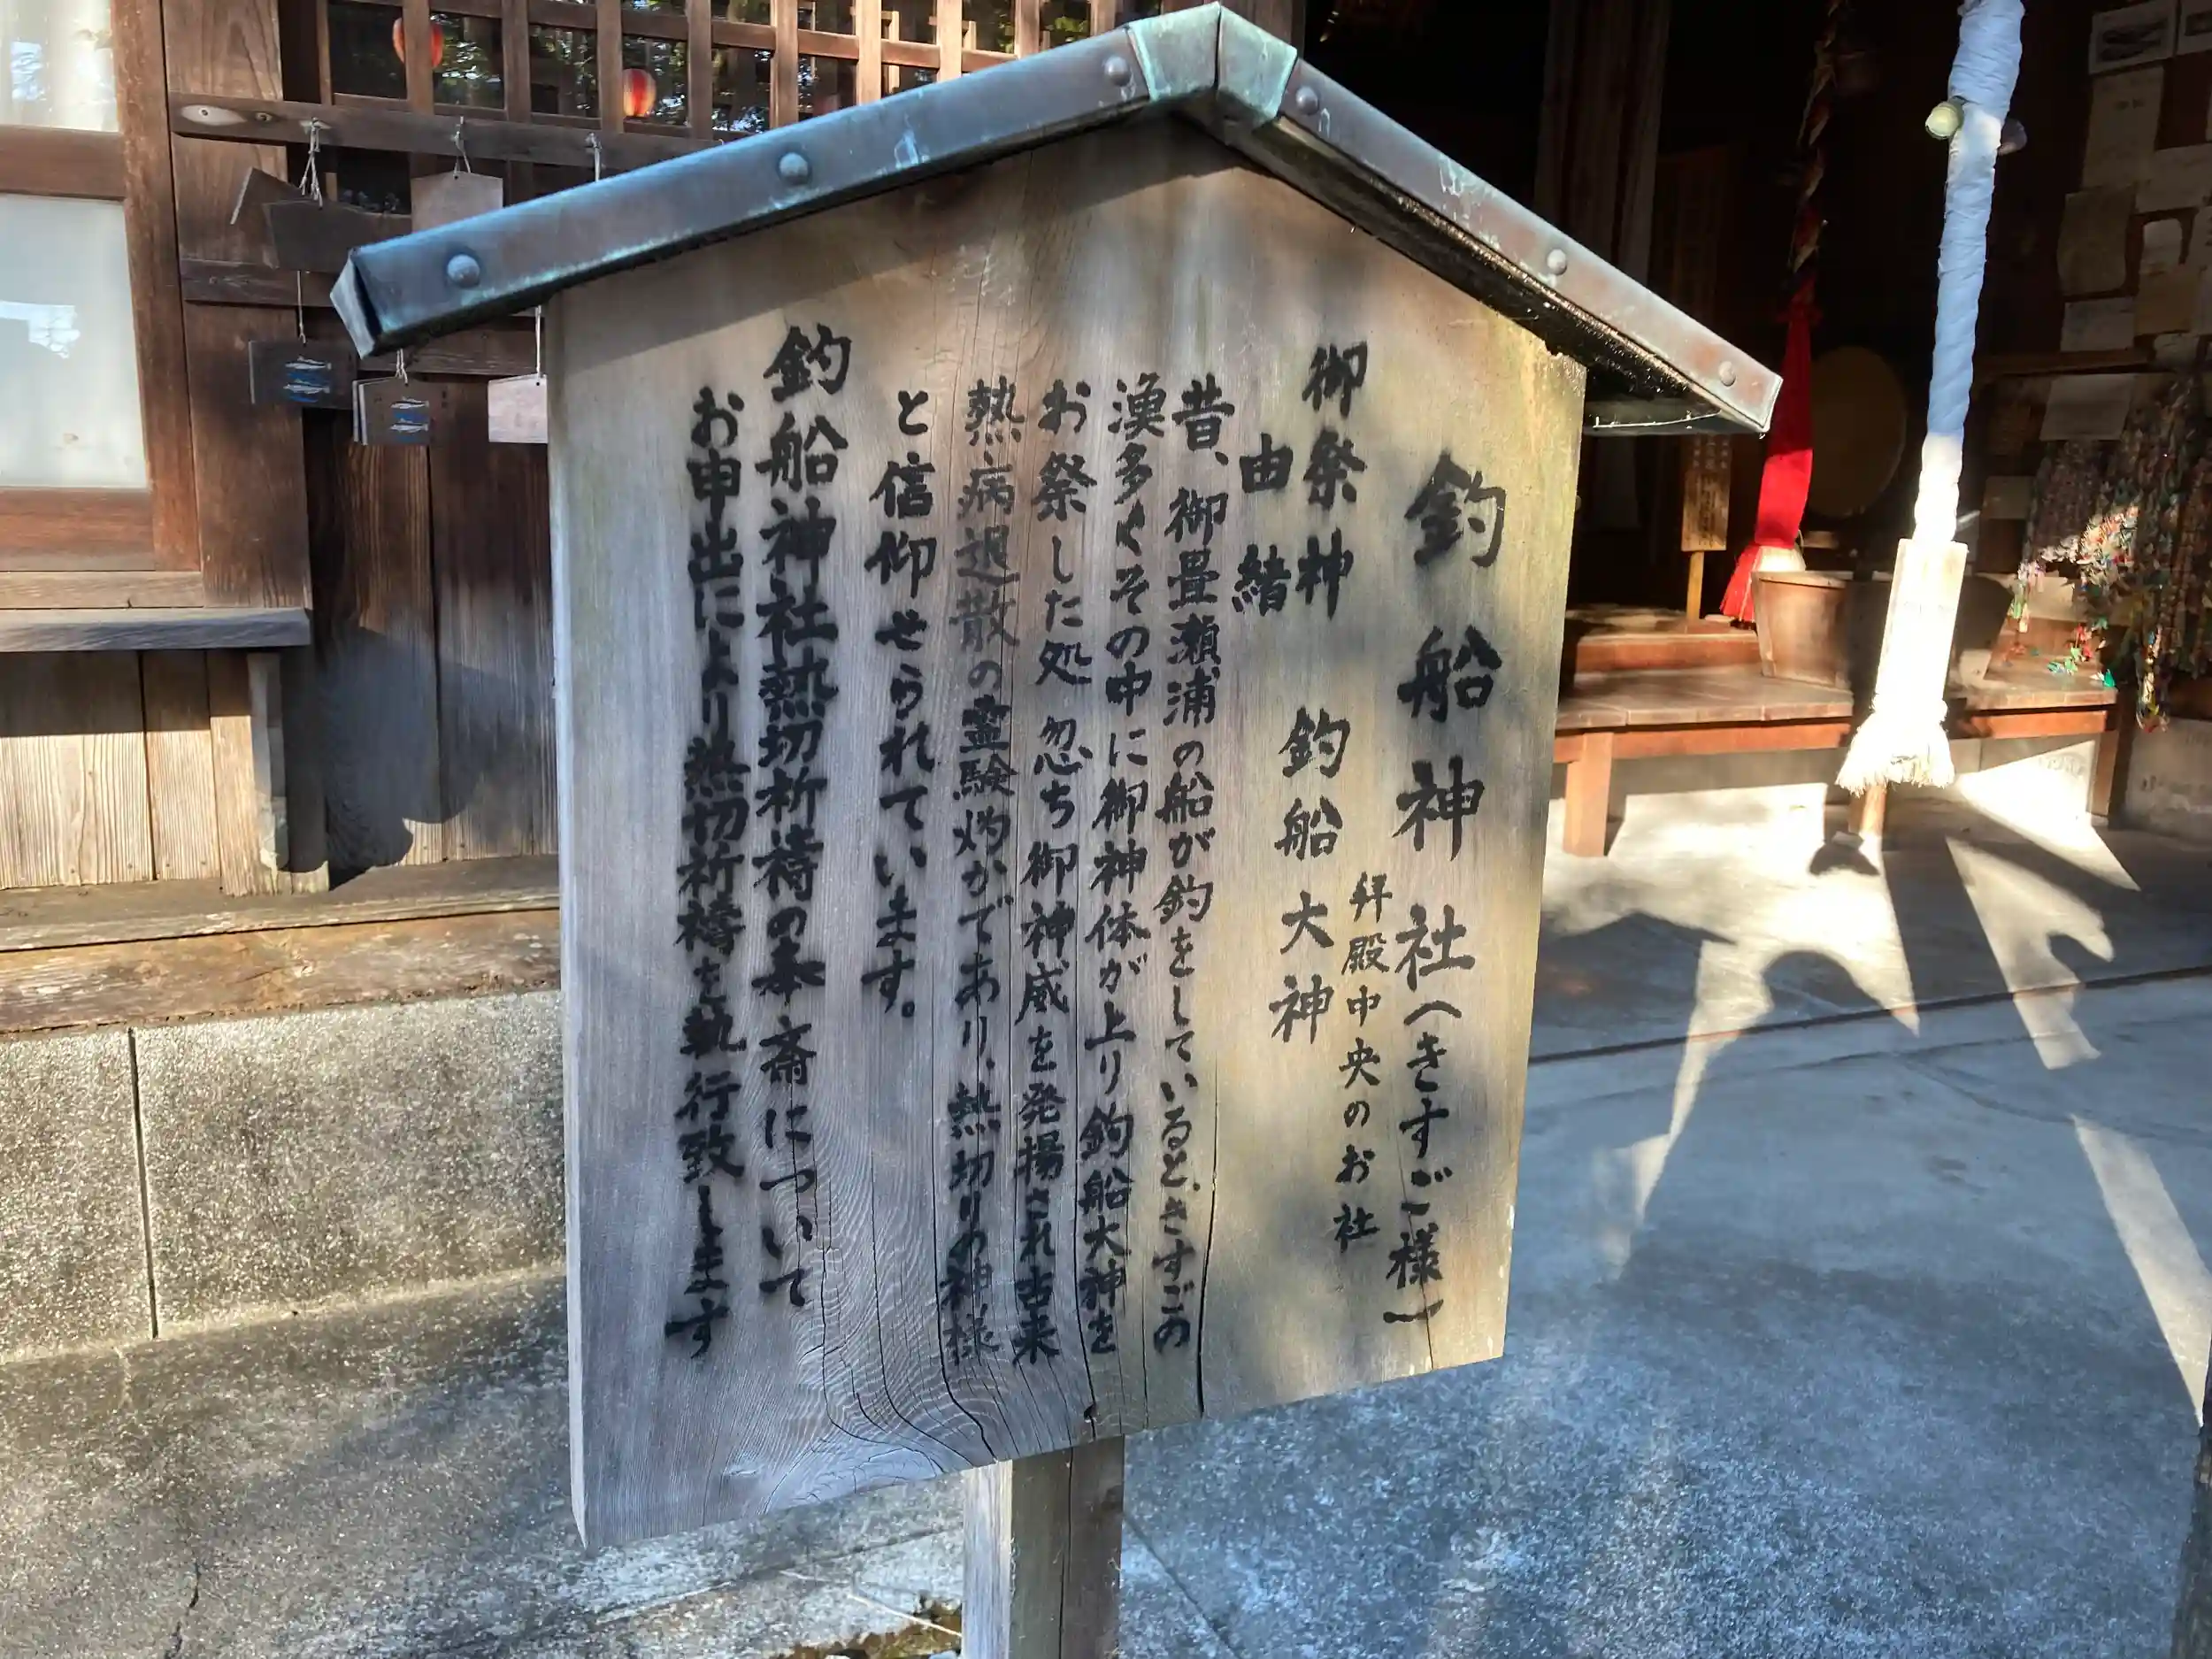 釣船神社（きすご様）
拝殿中央のお社
御祭神　釣船大神
由緒
昔、御畳瀬浦の船が釣をしているときすごの
漁多くその中に御神体が上り釣船大神を
お祭した処忽ち御神威を発揚され古来
熱病退散の霊験灼かであり、熱切りの神様
と信仰せられています。
釣船神社熱切祈禱の奉斎について
お申出により熱切祈禱を執行致します